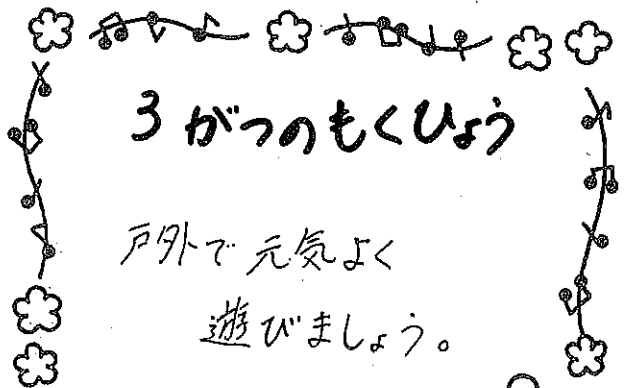 3がつのもくひょう
戸外で元気よく
遊びましょう。